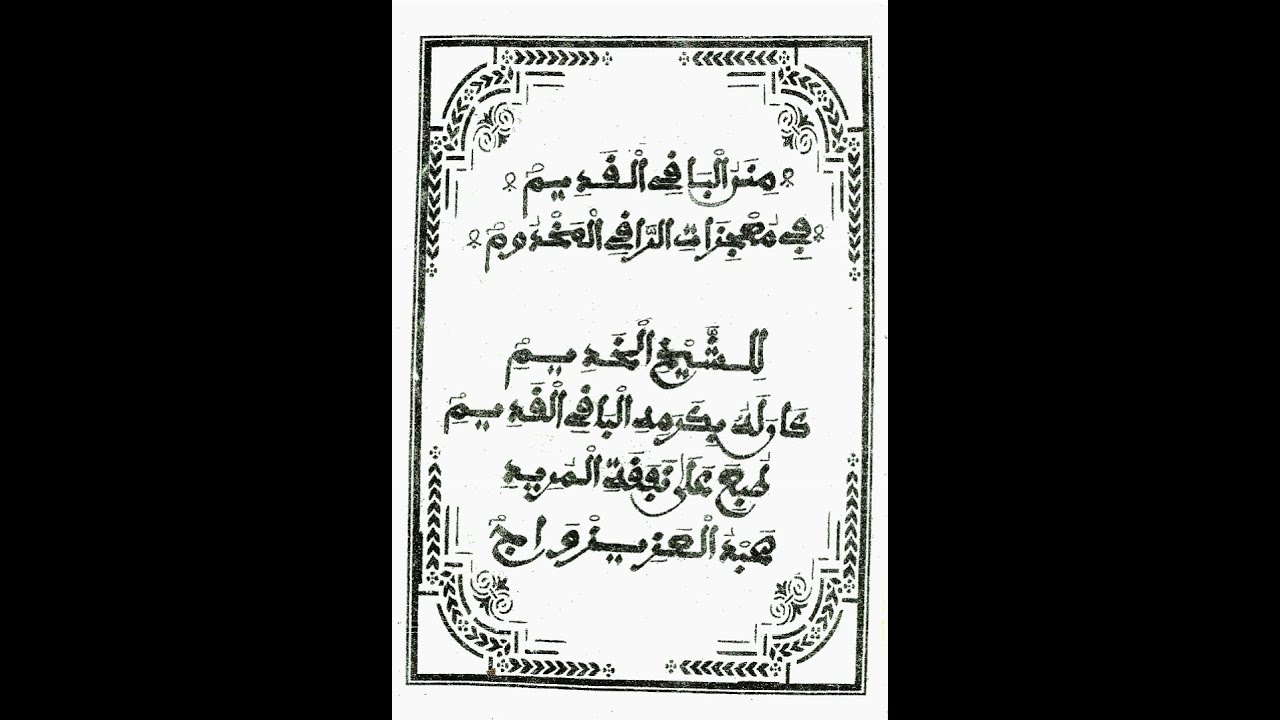 مِنَنُ الْبَاقِي الْقَدِيمْ
فِي مُعْجِزَاتِ الرَّاقِي الْمَخْدُومْ
لِلشَّيْخِ الْخَدِيمْ
كَانَ لَهُ بِكَرَمِهِ الْبَاقِي الْقَدِيمْ
طُبِعَ عَلَى نَفَقَةِ الْمُرِيدِ
عَبْدُ الْعَزِيزْ وَاجْ